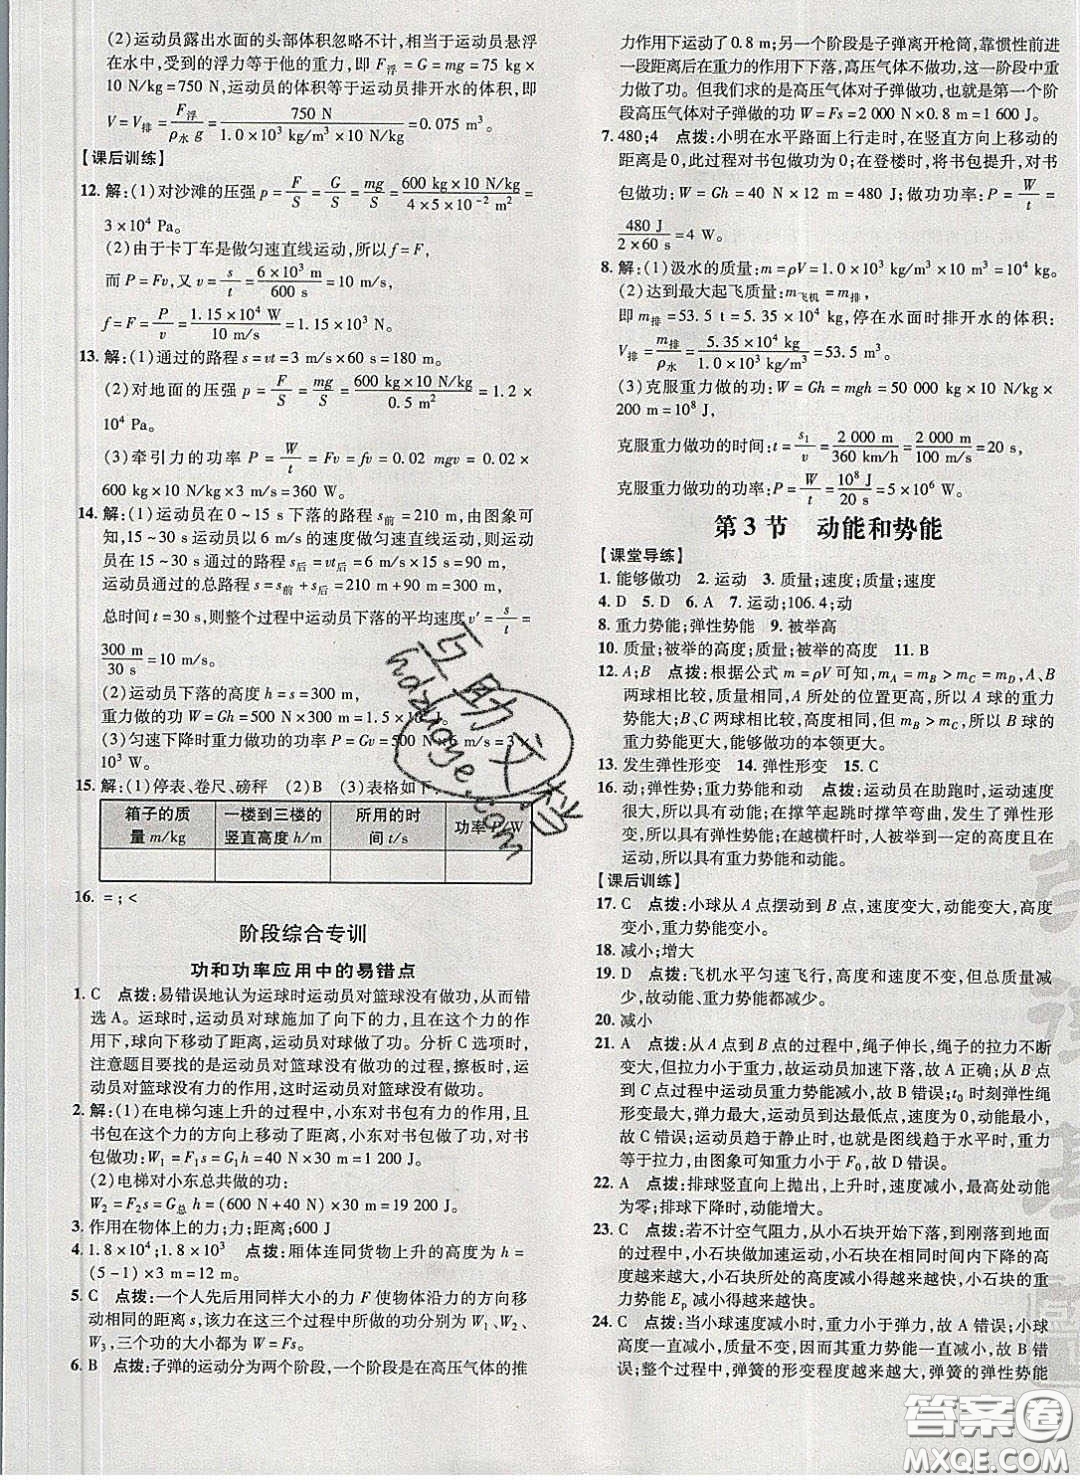 (2)运动员露出水面的头部体积忽略不计,相当于运动员悬浮
在水中,受到的浮力等于他的重力,即 F浮=G=mg=75 kg×
10 N/kg=750 N,运动员的体积等于运动员排开水的体积,即
V=V排=F浮/(ρ水 g)=750 N/(1.0×10³ kg/m³×10 N/kg)=0.075 m³。
【课后训练】
12. 解:(1)对沙滩的压强 p=F/S=G/S=mg/S=(600 kg×10 N/kg)/(4×5×10⁻² m²)=
3×10⁴ Pa。
(2)由于卡丁车是做匀速直线运动,所以 f=F,
而 P=Fv,v=s/t=(6×10³ m)/(600 s)=10 m/s,
f=F=P/v=(1.15×10⁴ W)/(10 m/s)=1.15×10³ N。
13. 解:(1)通过的路程 s=vt=3 m/s×60 s=180 m。
(2)对地面的压强 p=F/S=mg/S=(600 kg×10 N/kg)/(0.5 m²)=1.2×
10⁴ Pa。
(3)牵引力的功率 P=W/t=Fv=fv=0.02 mgv=0.02×
600 kg×10 N/kg×3 m/s=360 W。
14. 解:(1)运动员在 0~15 s 下落的路程 s前=210 m,由图象可
知,15~30 s 运动员以 6 m/s 的速度做匀速直线运动,所以
15~30 s 运动员下落的路程 s后=vt后=6 m/s×15 s=90 m,
运动员下落的总路程 s=s前+s后=210 m+90 m=300 m,
总时间 t=30 s,则整个过程中运动员下落的平均速度 v′=s/t=
300 m/30 s=10 m/s。
(2)运动员下落的高度 h=s=300 m,
重力做的功 W=Gh=500 N×300 m=1.5×
(3)匀速下降时重力做功的功率 P=Gv=500 N×6 m/s=3
10³ W。
15. 解:(1)停表、卷尺、磅秤 (2)B (3)表格如下
箱子的质量 m/kg 一楼到三楼的竖直高度 h/m 所用的时间 t/s 功率 P/W
16. =;<
阶段综合专训
功和功率应用中的易错点
1. C 点拨:易错误地认为运球时运动员对篮球没有做功,从而错
选 A。运球时,运动员对球施加了向下的力,且在这个力的作用
下,球向下移动了距离,运动员对球做了功。分析 C 选项时,
注意题目要找的是运动员对篮球没有做功的过程,擦板时,运
动员对篮球没有力的作用,这时运动员对篮球没有做功。
2. 解:(1)在电梯匀速上升的过程中,小东对书包有力的作用,且
书包在这个力的方向上移动了距离,小东对书包做了功。对书
包做功:W₁=F₁s=G₁h=40 N×30 m=1 200 J。
(2)电梯对小东总共做的功:
W₂=F₂s=G总 h=(600 N+40 N)×30 m=19 200 J。
3. 作用在物体上的力;力;距离;600 J
4. 1.8×10⁴;1.8×10³ 点拨:厢体连同货物上升的高度为 h=
(5-1)×3 m=12 m。
5. C 点拨:一个人先后用同样大小的力 F 使物体沿力的方向移
动相同的距离 s,该力在这三个过程中所做的功分别为 W₁、W₂、
W₃,三个功的大小都为 W=Fs。
6. B 点拨:子弹的运动分为两个阶段,一个阶段是在高压气体的推
力作用下运动了 0.8 m;另一个阶段是子弹离开枪筒,靠惯性前进
一段距离后在重力的作用下下落,高压气体不做功,这一阶段中重
力做了功。但我们求的是高压气体对子弹做功,也就是第一个阶
段高压气体对子弹做的功为 W=Fs=2 000 N×0.8 m=1 600 J。
7. 480;4 点拨:小明在水平路面上行走时,在竖直方向上移动的
距离是 0,此过程对书包做功为 0;在登楼时,将书包提升,对书
包做功:W=Gh=40 N×12 m=480 J;做功功率:P=W/t=
480 J/(2×60 s)=4 W。
8. 解:(1)汲水的质量:m=ρV=1.0×10³ kg/m³×10 m³=10⁴ kg。
(2)达到最大起飞质量:m飞机=m排,
即 m排=53.5 t=5.35×10⁴ kg,停在水面时排开水的体积:
V排=m排/ρ水=(5.35×10⁴ kg)/(1.0×10³ kg/m³)=53.5 m³。
(3)克服重力做的功:W=Gh=mgh=50 000 kg×10 N/kg×
200 m=10⁸ J,
克服重力做功的时间:t=s₁/v=2 000 m/360 km/h=2 000 m/100 m/s=20 s,
克服重力做功的功率:P=W/t=10⁸ J/20 s=5×10⁶ W。
第 3 节 动能和势能
【课堂导练】
1. 能够做功 2. 运动 3. 质量;速度;质量;速度
4. D 5. D 6. A 7. 运动;106.4;动
8. 重力势能;弹性势能 9. 被举高
10. 质量;被举的高度;质量;被举的高度 11. B
12. A;B 点拨:根据公式 m=ρV 可知,mA=mB>mC=mD,A、B
两球相比较,质量相等,A 所处的位置更高,所以 A 球的重力
势能大;B、C 两球相比较,高度相等,但 mB>mC,所以 B 球的
重力势能更大,能够做功的本领更大。
13. 发生弹性形变 14. 弹性形变 15. C
16. 动;弹性势;重力势能和动 点拨:运动员在助跑时,运动速度
越来越大,动能增大;在撑竿起跳时撑竿弯曲,产生了弹性形
变,具有了弹性势能;在越横杆时,人被举到一定的高度且在
运动,所以具有重力势能和动能。
【课后训练】
17. C 点拨:小球从 A 点摆动到 B 点,速度变大,动能变大,高度
变小,重力势能变小。
18. 减小;增大
19. D 点拨:飞机水平匀速飞行,高度和速度不变,但总质量减
小,故动能、重力势能都减少。
20. 减小
21. A 点拨:从 A 点到 B 点的过程中,绳子伸长,绳子的拉力不断
变大,但拉力小于重力,故运动员加速下落,故 A 正确;从 A
点到 B 点过程中运动员重力势能减小,故 B 错误;t₀ 时刻弹性绳
形变最大,弹力最大,运动员到达最低点,速度为 0,动能最小,
故 C 错误;运动员最后趋于静止时,也就是图线趋于水平时,重力
等于拉力,由图象可知重力小于 F₀,故 D 错误。
22. A 点拨:排球竖直向上抛出,上升时,速度减小,最高处动能
为零;排球下降时,速度增大,动能增大。
23. C 点拨:若不计空气阻力,小石块从开始下落,到刚落到地面
的过程中,小石块做加速运动,小石块在相同时间内下降的高
度越来越大,小石块所处的高度减小得越来越快,小石块的重力
势能 Ep 减小得越来越快。
24. C 点拨:当小球速度减小时,重力小于弹力,故 A 错误;小球
高度一直减小,质量不变,小球的重力势能一直减小,故 B 错
误;整个过程中,弹簧的形变程度越来越大,弹簧的弹性势能
互助文档
hdzuoye.com
答案圈
MXQE.COM